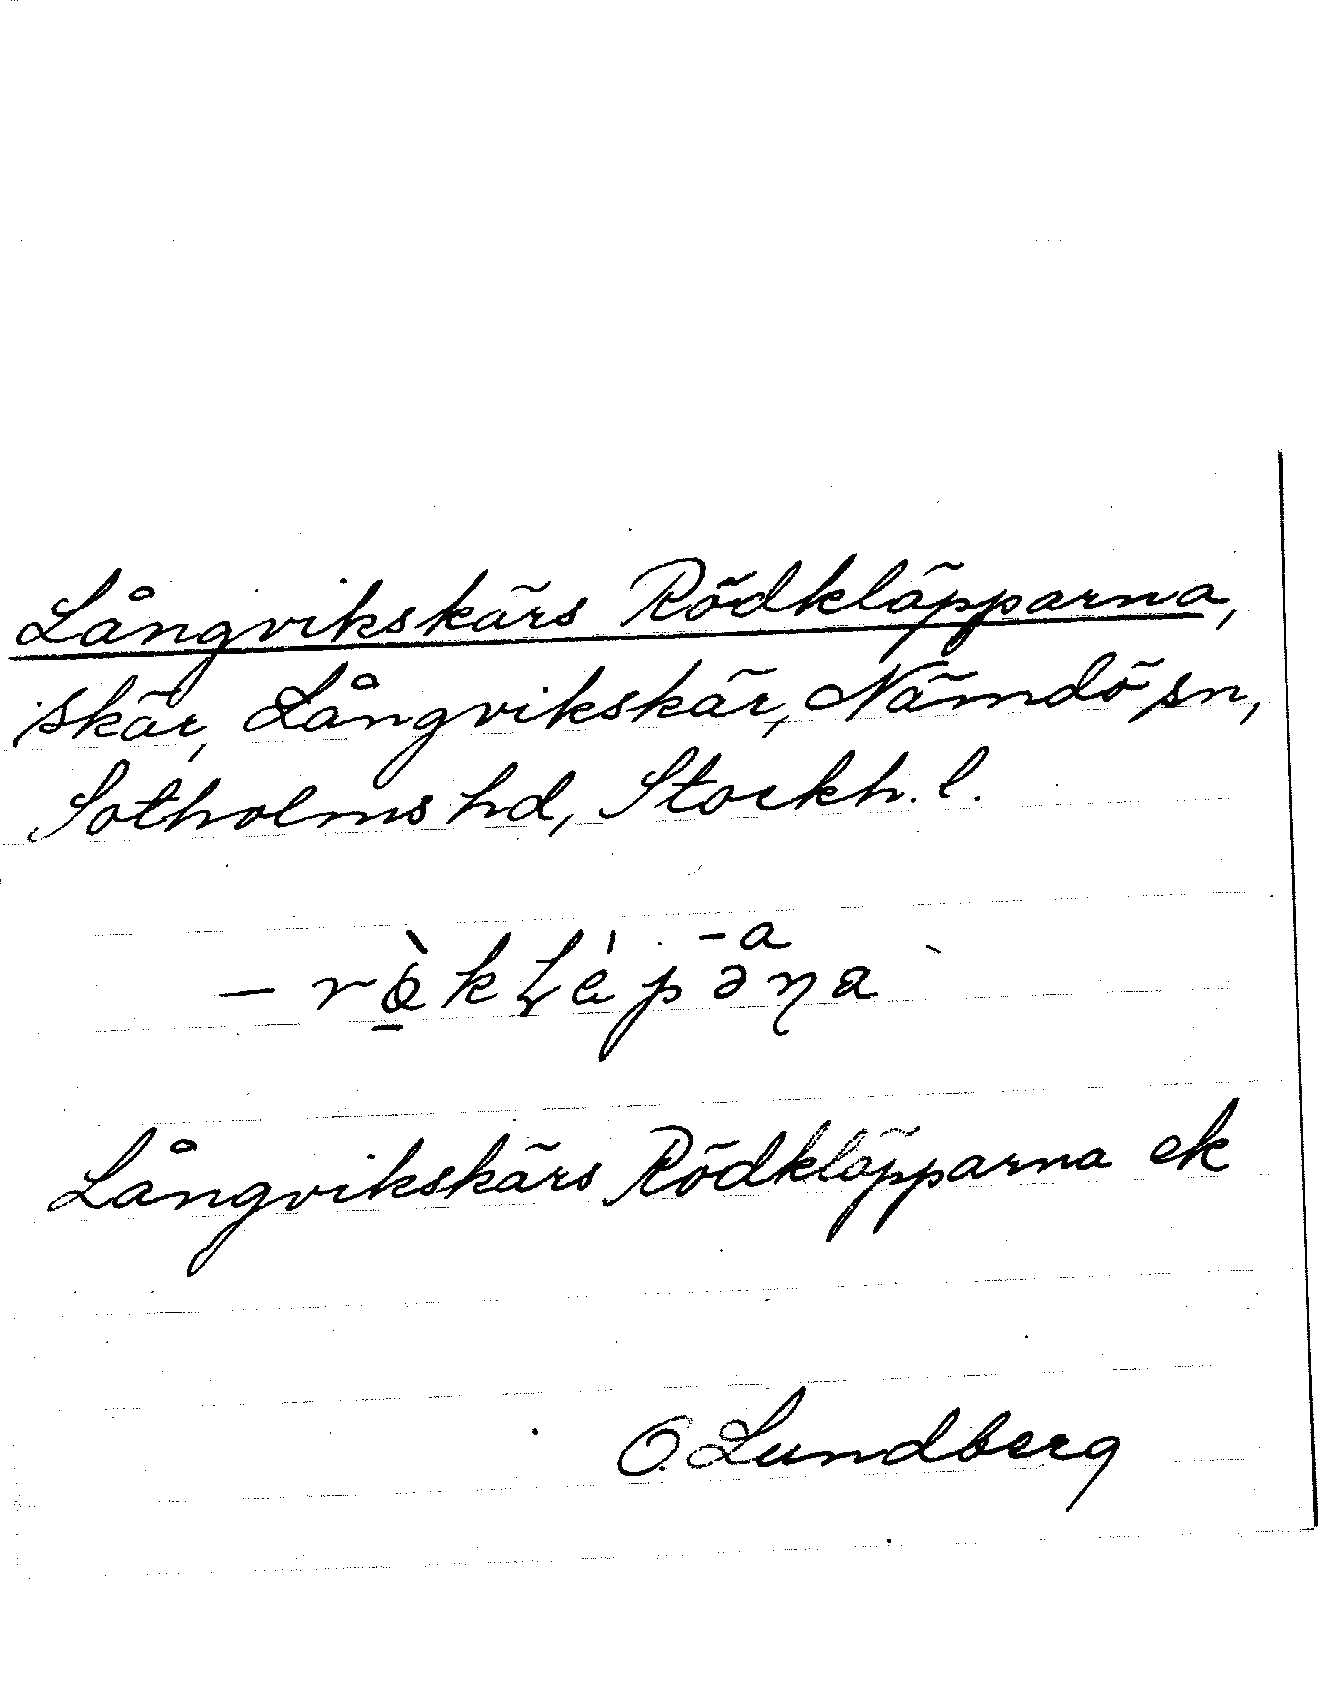 Långvikskärs Rödkläpparna,
skär, Långvikskär, Nämdö sn,
Sotholms hd, Stockh. l.
-a
– rö̀kļépəņa
Långvikskärs Rödkläpparna ek
O. Lundberg